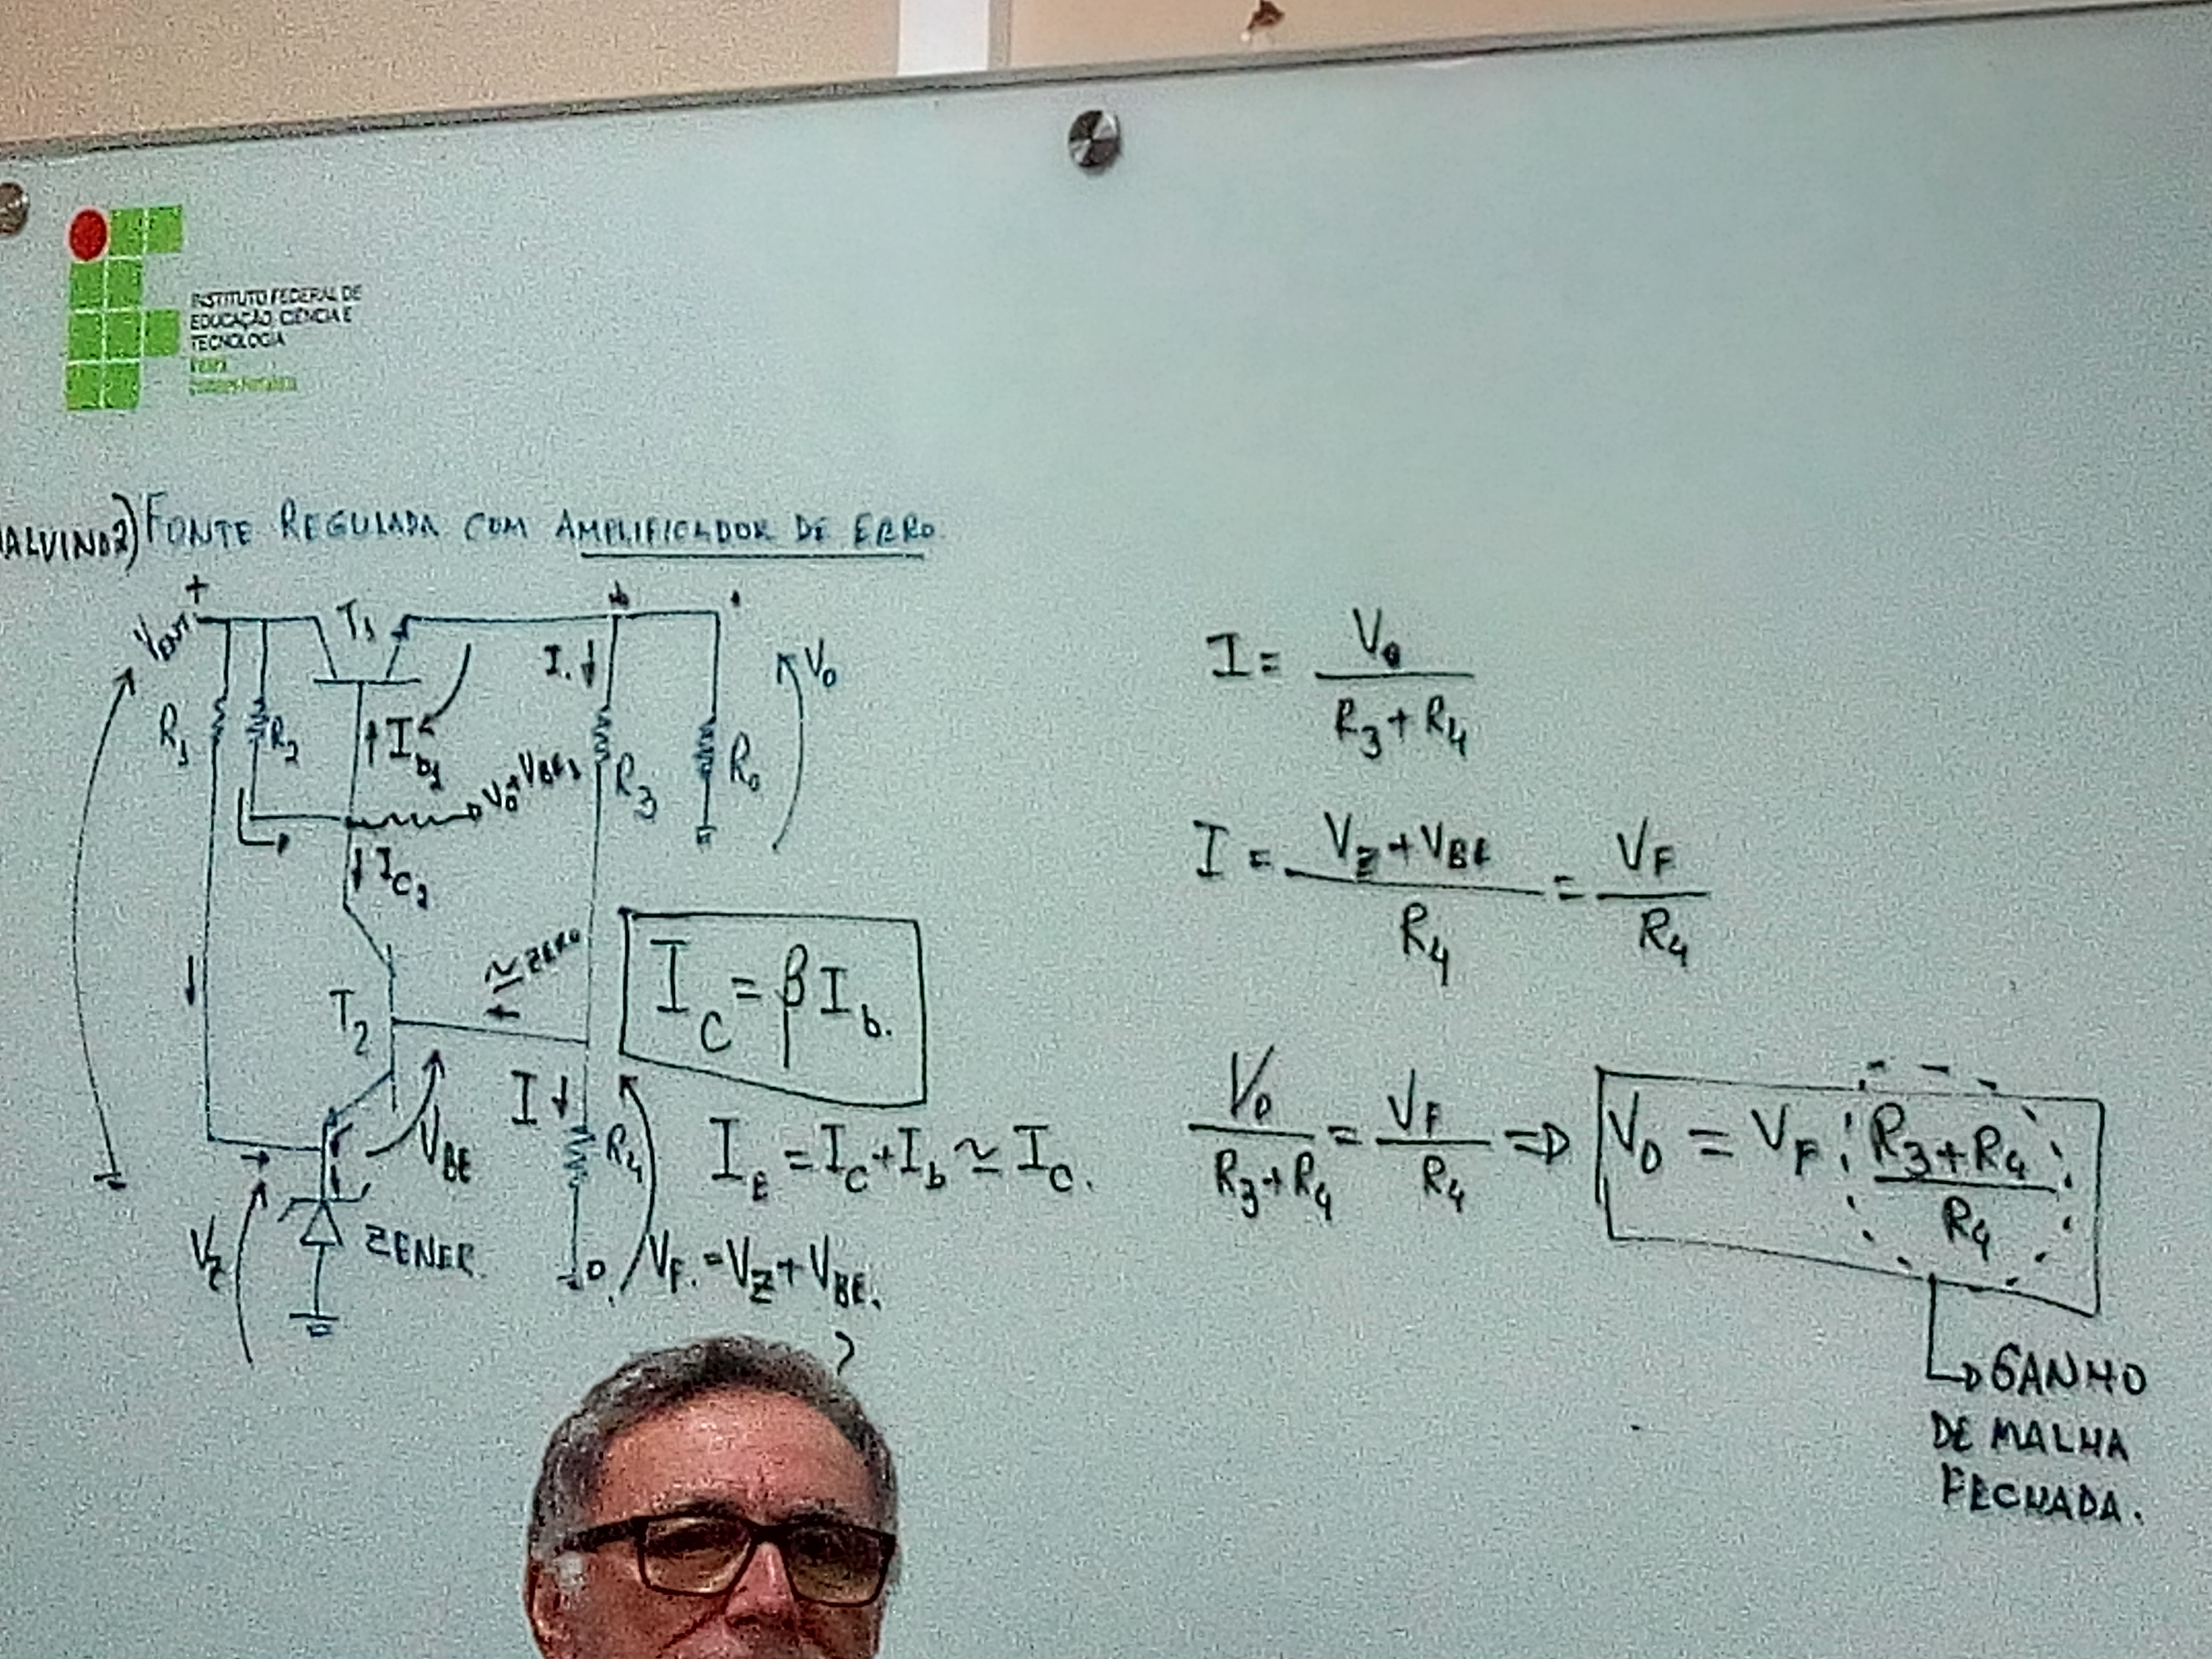 INSTITUTO FEDERAL DE
EDUCAÇÃO, CIÊNCIA E
TECNOLOGIA
FONTE REGULADA COM AMPLIFICADOR DE ERRO.
+
VENT
T1
I
V0
R1
R2
Ib1
V0+VBE1
R3
R0
IC2
≃ ZERO
IC = β Ib.
T2
I
VBE
R4
IE = IC + Ib ≃ IC.
VZ
ZENER
VF = VZ + VBE.
I = V0 / (R3 + R4)
I = (VZ + VBE) / R4 = VF / R4
V0 / (R3 + R4) = VF / R4 ⇒ V0 = VF (R3 + R4) / R4
GANHO
DE MALHA
FECHADA.